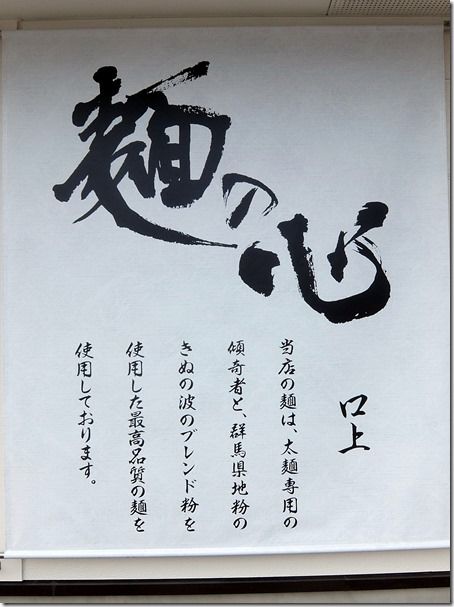 麺の心
口上
当店の麺は、太麺専用の
傾奇者と、群馬県地粉の
きぬの波のブレンド粉を
使用した最高品質の麺を
使用しております。